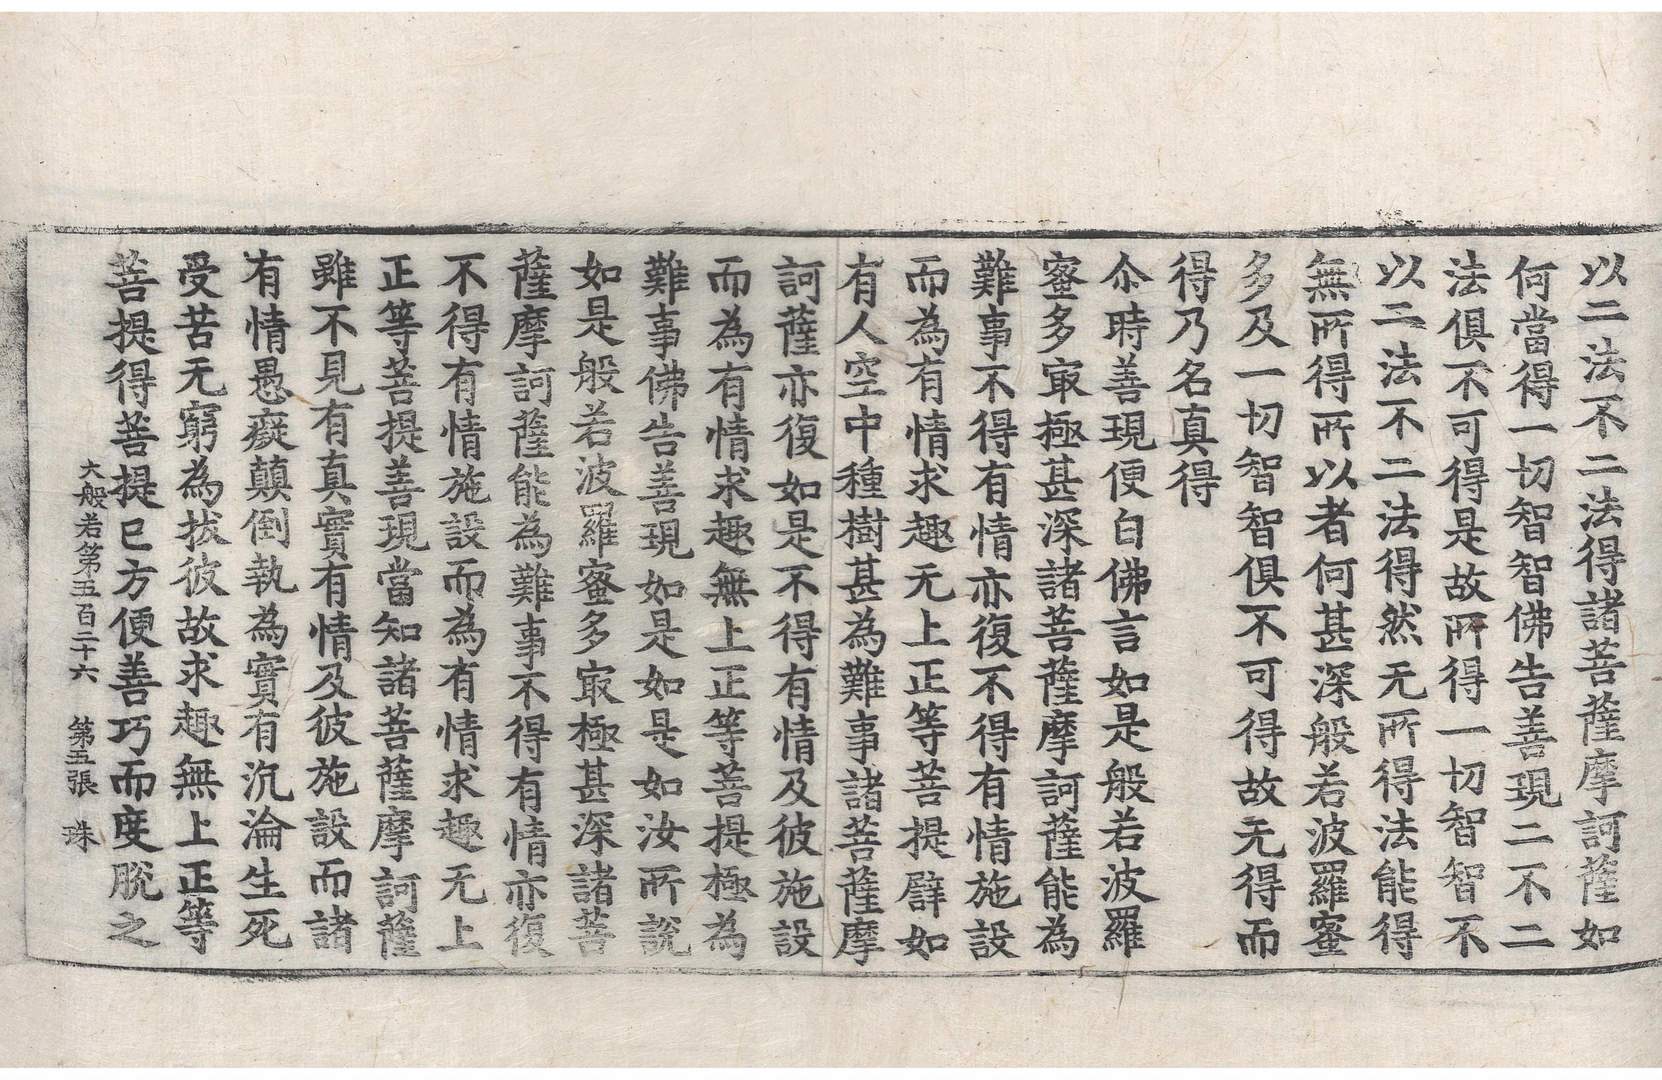 以二法不二法得諸菩薩摩訶薩如
何當得一切智智佛告善現二不二
法俱不可得是故所得一切智智不
以二法不二法得然无所得法能得
無所得所以者何甚深般若波羅蜜
多及一切智智俱不可得故无得而
得乃名真得
尒時善現便白佛言如是般若波羅
蜜多寂極甚深諸菩薩摩訶薩能為
難事不得有情亦復不得有情施設
而為有情求趣无上正等菩提譬如
有人空中種樹甚為難事諸菩薩摩
訶薩亦復如是不得有情及彼施設
而為有情求趣無上正等菩提極為
難事佛告善現如是如是如汝所說
如是般若波羅蜜多寂極甚深諸菩
薩摩訶薩能為難事不得有情亦復
不得有情施設而為有情求趣无上
正等菩提善現當知諸菩薩摩訶薩
雖不見有真實有情及彼施設而諸
有情愚癡顛倒執為實有沉淪生死
受苦无窮為拔彼故求趣無上正等
菩提得菩提已方便善巧而度脫之
大般若第五百二十六　第五張　珠